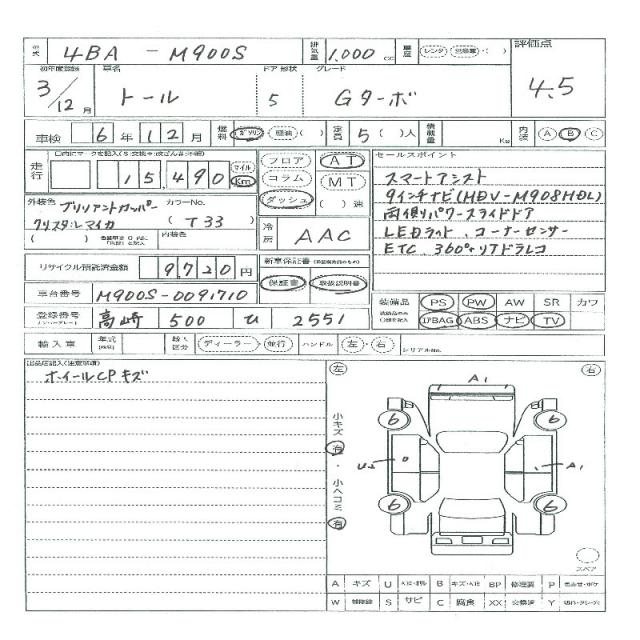 型式 4BA - M900S 排気量 1,000 cc 車歴 レンタ 評価点
初年度登録 車名 ドア 形状 グレード
3/12月 トール 5 Gターボ 4.5
車検 6年12月 燃料 ガソリン 軽油 ( ) 定員 5( )人 積載量 Kg 内装 A B C
走行 15,490 マイル Km フロア AT セールスポイント
コラム MT スマートアシスト
ダッシュ ( )速 9インチナビ(MDV-M908HDL)
外装色 ブリリアントカッパー カラーNo. 両側パワースライドドア
クリスタルマイカ ( T33 ) LEDライト、コーナーセンサー
( ) 内装色 冷房 AAC ETC、360°+リアドラレコ
リサイクル預託済金額 9,720円 新車保証書
保証書 取扱説明書
車台番号 M900S-0091710 装備品 PS PW AW SR カワ
登録番号 高崎 500 ひ 2551 AIRBAG ABS ナビ TV
輸入車 年式 輸入区分 ディーラー・並行 ハンドル 左・右 シリアルNo.
ホイールCPキズ
左 右
A1
小キズ 有・小ヘコミ 有
6 6
U2 A1
6 6
スペア
A キズ U B BP 修理跡 P
W S サビ C 腐食 XX 交換済 Y